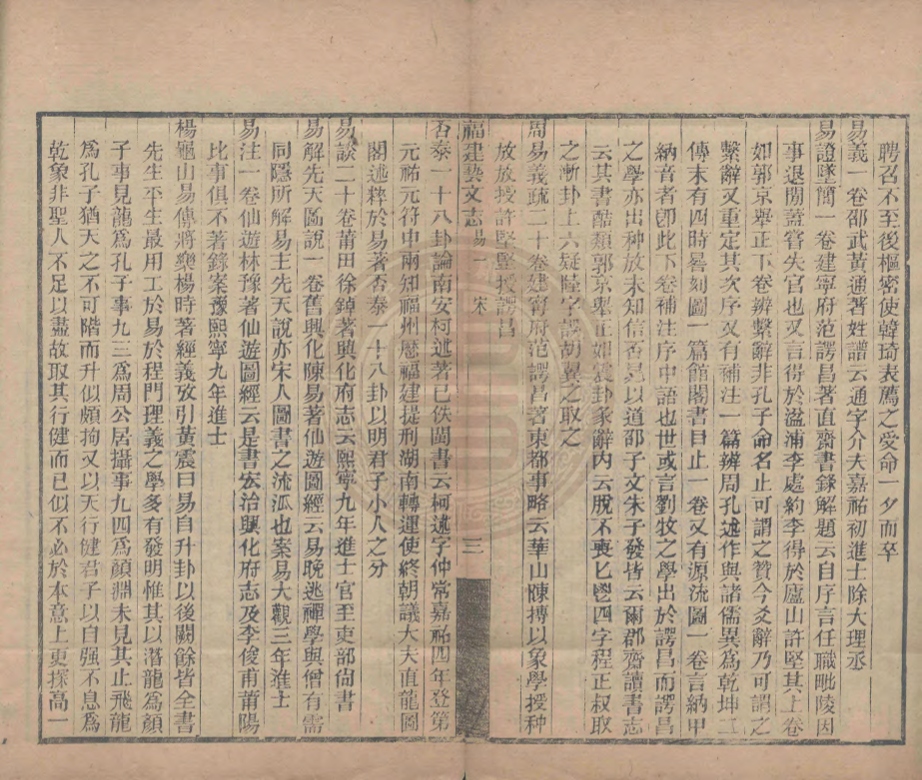 聘召不至後樞密使韓琦表薦之受命一夕而卒
易義一卷邵武黃通著姓譜云通字介夫嘉祐初進士除大理丞
易證墜簡一卷建寧府范諤昌著直齋書錄解題云自序言任職毗陵因
事退閒蓋嘗失官也又言得於湓浦李處約李得於廬山許堅其上卷
如郭京舉正下卷辨繫辭非孔子命名止可謂之贊今爻辭乃可謂之
繫辭又重定其次序又有補注一篇辨周孔述作與諸儒異爲乾坤二
傳末有四時晷刻圖一篇館閣書目止一卷又有源流圖一卷言納甲
納音者卽此下卷補注序中語也世或言劉牧之學出於諤昌而諤昌
之學亦出种放未知信否晁以道邵子文朱子發皆云爾郡齋讀書志
云其書酷類郭京舉正如震卦彖辭內云脫不喪匕鬯四字程正叔取
之漸卦上六疑陸字誤胡翼之取之
周易義疏二十卷建甯府范諤昌著東都事略云華山陳摶以象學授种
放放授許堅堅授諤昌
福建藝文志 易一 宋 三
否泰一十八卦論南安柯述著已佚閩書云柯述字仲常嘉祐四年登第
元祐元符中兩知福州歷福建提刑湖南轉運使終朝議大夫直龍圖
閣述粹於易著否泰一十八卦以明君子小人之分
易談二十卷莆田徐鐸著興化府志云熙寧九年進士官至吏部尙書
易解先天圖說一卷舊興化陳易著仙遊圖經云易晚逃禪學與僧有需
同隱所解易主先天說亦宋人圖書之流派也案易大觀三年進士
易注一卷仙遊林豫著仙遊圖經云是書宏治興化府志及李俊甫莆陽
比事俱不著錄案豫熙寧九年進士
楊龜山易傳將樂楊時著經義攷引黃震曰易自升卦以後闕餘皆全書
先生平生最用工於易於程門理義之學多有發明惟其以潛龍爲顏
子事見龍爲孔子事九三爲周公居攝事九四爲顏淵未見其止飛龍
爲孔子猶天之不可階而升似頗拘又以天行健君子以自强不息爲
乾象非聖人不足以盡故取其行健而已似不必於本意上更探高一